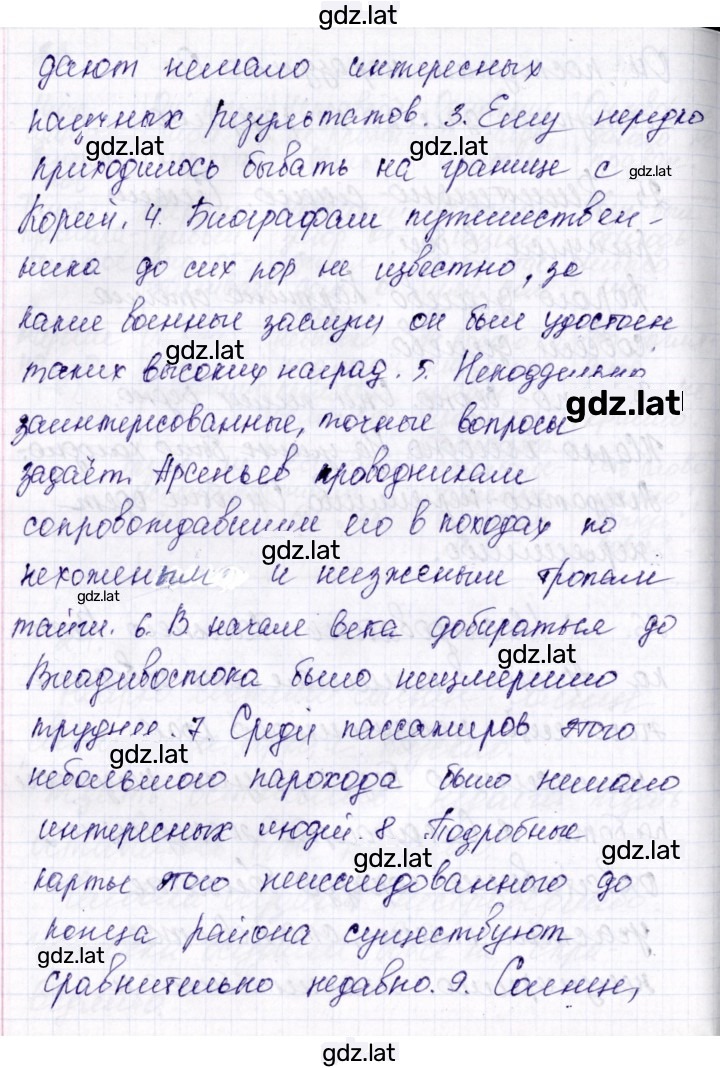 gdz.lat
дают немало интересных
научных результатов. 3. Ему нередко
gdz.lat
gdz.lat
приходилось бывать на границе с
gdz.lat
Кореи. 4. Биографам путешествен-
ника до сих пор не известно, за
какие военные заслуги он был удостоен
gdz.lat
таких высоких наград. 5. Неподдельно
gdz.lat
заинтересованные, точные вопросы
задаёт Арсеньев проводникам
сопровождавшими его в походах по
gdz.lat
нехоженым и неезженым тропам
gdz.lat
тайги. 6. В начале века добираться до
gdz.lat
Владивостока было неизмеримо
труднее. 7 Среди пассажиров этого
gdz.lat
небольшого парохода было немало
интересных людей. 8. Подробные
gdz.lat
gdz.lat
карты этого неисследованного до
конца района существуют
gdz.lat
сравнительно недавно. 9. Солнце,
gdz.lat